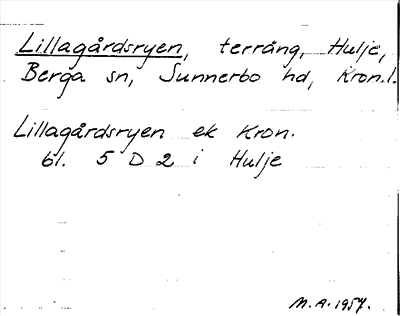 Lillagårdsryen, terräng, Hulje,
Berga sn, Sunnerbo hd, Kron.l.
Lillagårdsryen ek Kron.
bl. 5 D 2 i Hulje
M.A. 1957.